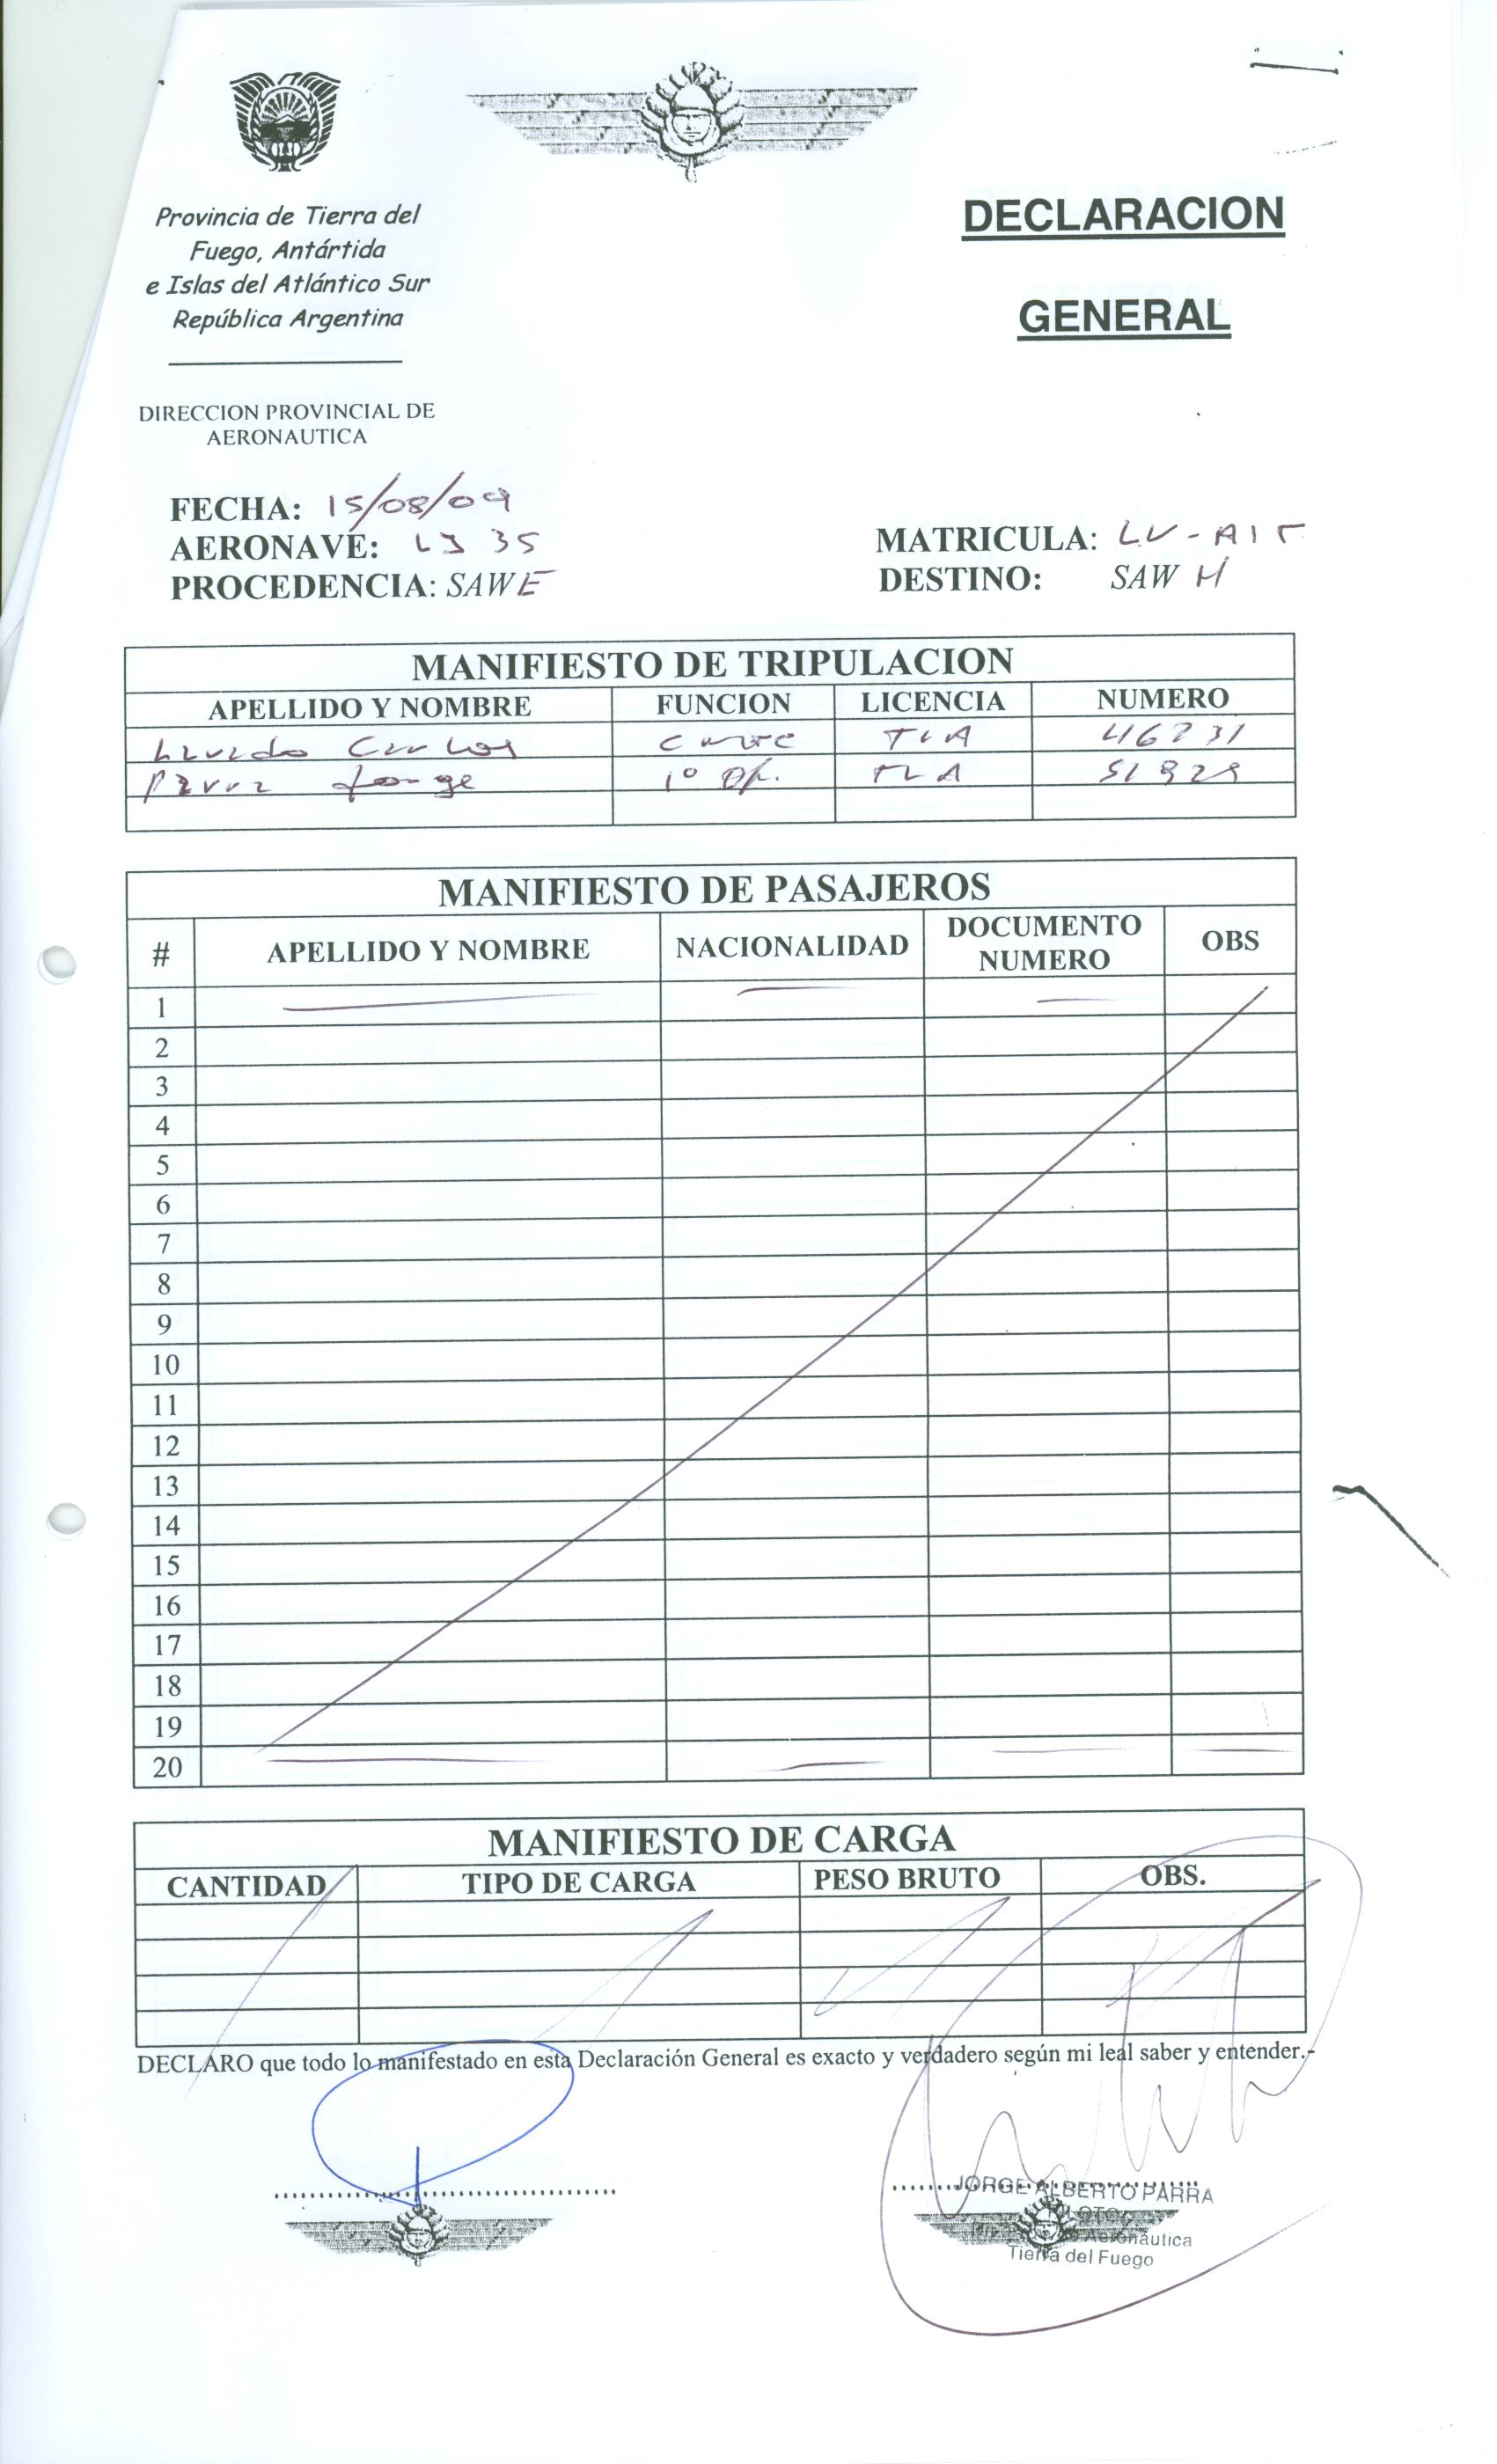 Provincia de Tierra del
Fuego, Antártida
e Islas del Atlántico Sur
República Argentina
DECLARACION
GENERAL
DIRECCION PROVINCIAL DE
AERONAUTICA
FECHA: 15/08/09
AERONAVE: LJ 35
MATRICULA: LV-AIT
PROCEDENCIA: SAWE
DESTINO: SAWH
MANIFIESTO DE TRIPULACION
APELLIDO Y NOMBRE FUNCION LICENCIA NUMERO
Carlos TLA
Jorge 1º Of. TLA
MANIFIESTO DE PASAJEROS
# APELLIDO Y NOMBRE NACIONALIDAD DOCUMENTO NUMERO OBS
1
2
3
4
5
6
7
8
9
10
11
12
13
14
15
16
17
18
19
20
MANIFIESTO DE CARGA
CANTIDAD TIPO DE CARGA PESO BRUTO OBS.
DECLARO que todo lo manifestado en esta Declaración General es exacto y verdadero según mi leal saber y entender.-
JORGE ALBERTO PARRA
Aeronáutica
Tierra del Fuego